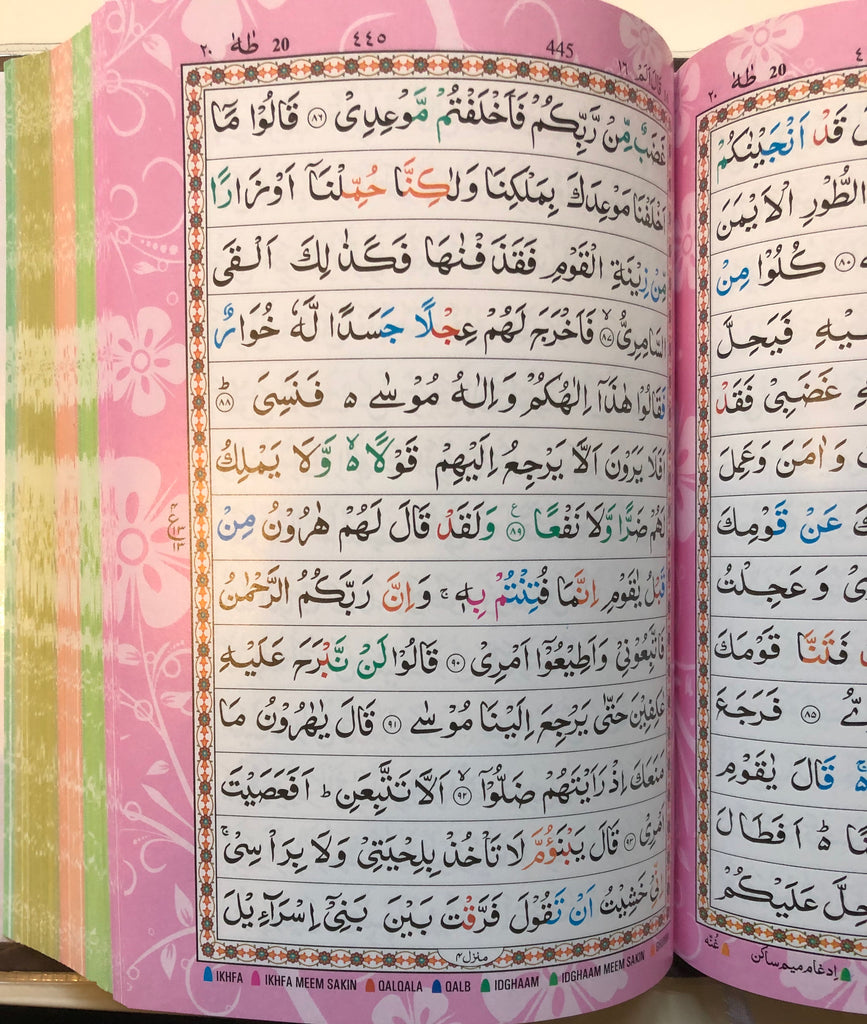 ٢٠ طٰهٰ 20 ٤٤٥ 445 ١٦
غَضَبٌ مِّنْ رَّبِّكُمْ فَاَخْلَفْتُمْ مَّوْعِدِیْ ﴿۸۶﴾ قَالُوْا مَاۤ
اَخْلَفْنَا مَوْعِدَكَ بِمَلْكِنَا وَلٰكِنَّا حُمِّلْنَاۤ اَوْزَارًا
مِّنْ زِیْنَةِ الْقَوْمِ فَقَذَفْنٰهَا فَكَذٰلِكَ اَلْقَی
السَّامِرِیُّ ﴿۸۷﴾ۙ فَاَخْرَجَ لَهُمْ عِجْلًا جَسَدًا لَّهٗ خُوَارٌ
فَقَالُوْا هٰذَاۤ اِلٰهُكُمْ وَاِلٰهُ مُوْسٰی ە فَنَسِیَ ﴿۸۸﴾ؕ
اَفَلَا یَرَوْنَ اَلَّا یَرْجِعُ اِلَیْهِمْ قَوْلًا ەۙ وَّلَا یَمْلِكُ
لَهُمْ ضَرًّا وَّلَا نَفْعًا ﴿۸۹﴾ وَلَقَدْ قَالَ لَهُمْ هٰرُوْنُ مِنْ
قَبْلُ یٰقَوْمِ اِنَّمَا فُتِنْتُمْ بِهٖ ۚ وَاِنَّ رَبَّكُمُ الرَّحْمٰنُ
فَاتَّبِعُوْنِیْ وَاَطِیْعُوْۤا اَمْرِیْ ﴿۹۰﴾ قَالُوْا لَنْ نَّبْرَحَ عَلَیْهِ
عٰكِفِیْنَ حَتّٰی یَرْجِعَ اِلَیْنَا مُوْسٰی ﴿۹۱﴾ قَالَ یٰهٰرُوْنُ مَا
مَنَعَكَ اِذْ رَاَیْتَهُمْ ضَلُّوْۤا ﴿۹۲﴾ۙ اَلَّا تَتَّبِعَنِ ؕ اَفَعَصَیْتَ
اَمْرِیْ ﴿۹۳﴾ قَالَ یَبْنَؤُمَّ لَا تَاْخُذْ بِلِحْیَتِیْ وَلَا بِرَاْسِیْ ۚ
اِنِّیْ خَشِیْتُ اَنْ تَقُوْلَ فَرَّقْتَ بَیْنَ بَنِیْۤ اِسْرَآءِیْلَ
منزل ۴
IKHFA IKHFA MEEM SAKIN QALQALA QALB IDGHAAM IDGHAAM MEEM SAKIN
٢٠ طٰهٰ 20
قَدْ اَنْجَیْنٰكُمْ
الطُّوْرِ الْاَیْمَنَ
﴿۸۰﴾ كُلُوْا مِنْ
فَیَحِلَّ
غَضَبِیْ فَقَدْ
وَاٰمَنَ وَعَمِلَ
عَنْ قَوْمِكَ
وَعَجِلْتُ
فَتَنَّا قَوْمَكَ
﴿۸۵﴾ فَرَجَعَ
قَالَ یٰقَوْمِ
اَفَطَالَ
عَلَیْكُمْ
غُنّه ادغام میم ساکن